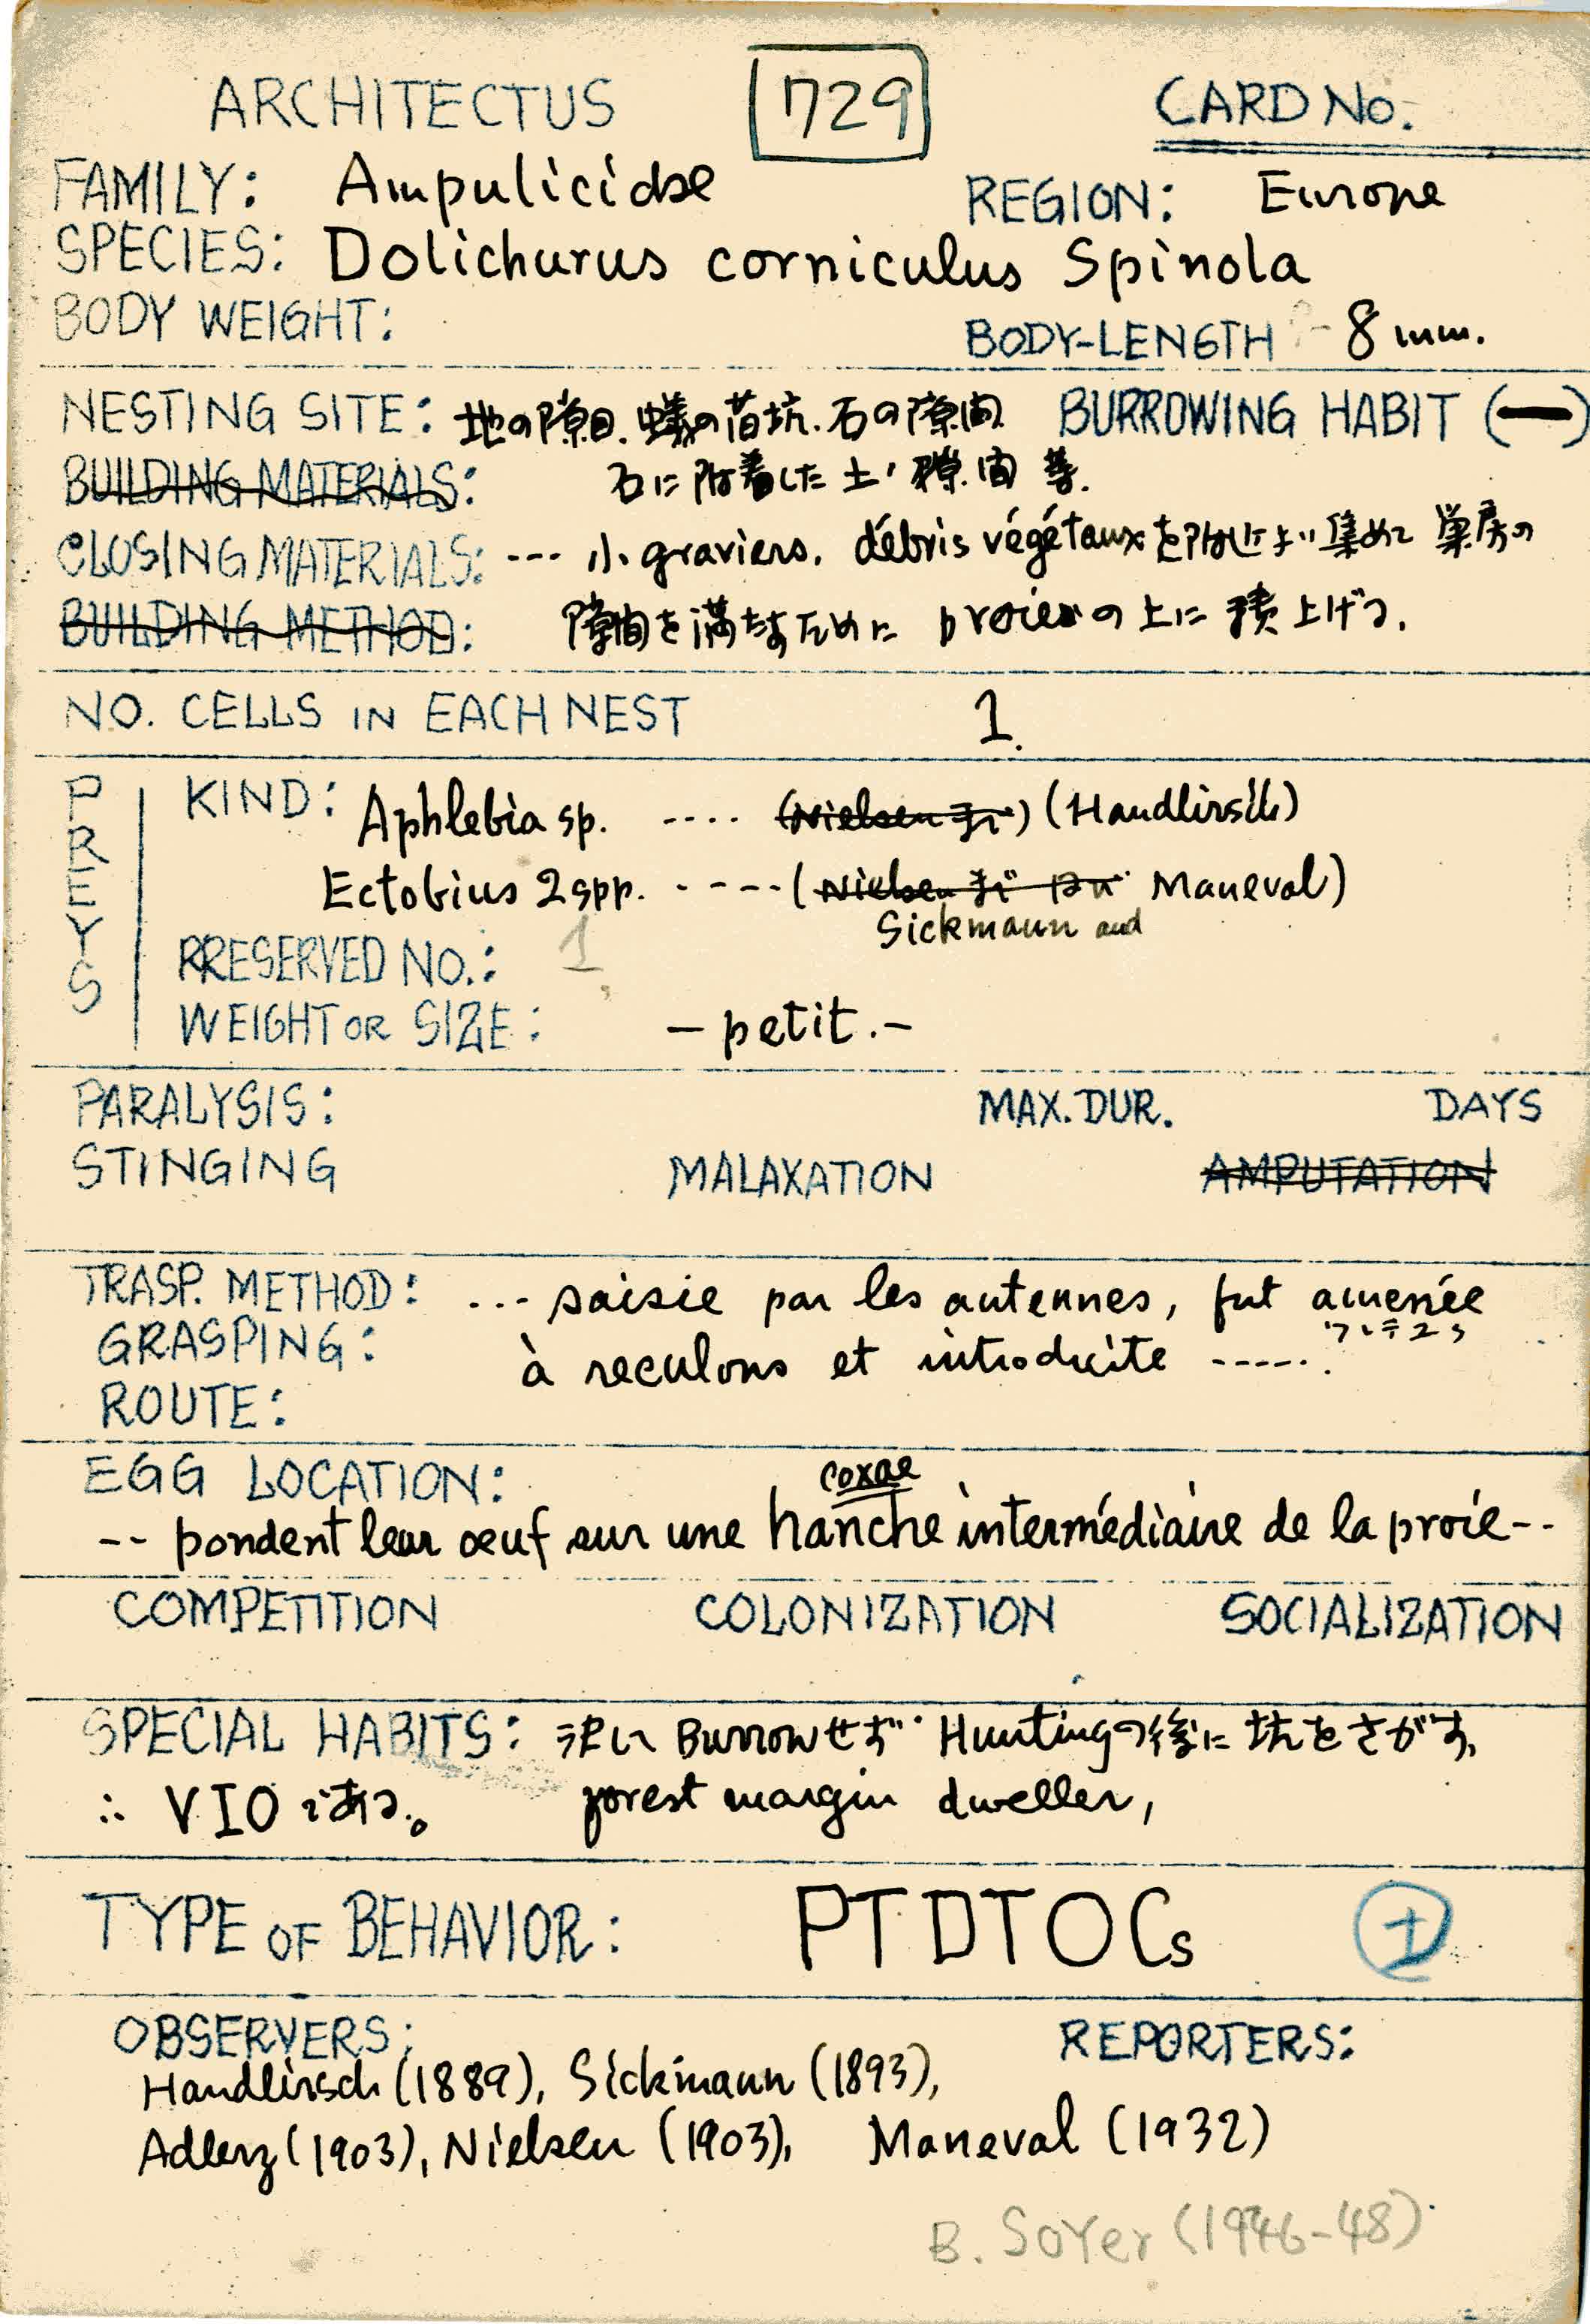 ARCHITECTUS 1729 CARD No.
FAMILY: Ampulicidae REGION: Europe
SPECIES: Dolichurus corniculus Spinola
BODY WEIGHT: BODY-LENGTH - 8 mm.
NESTING SITE: 地の隙目. 蟻の旧坑. 石の隙間 BURROWING HABIT (—)
BUILDING MATERIALS: 石に附着した土ノ隙間等.
CLOSING MATERIALS: --- 小 graviers, débris végétaux を附近より集めて 巣房の
BUILDING METHOD: 隙間を満たすために proies の上に積上げる.
NO. CELLS IN EACH NEST 1.
PREYS
KIND: Aphlebia sp. ---- (Nielsen) (Handlirsch)
Ectobius 2 spp. ---- (Nielsen Maneval)
Sickmann and
PRESERVED NO.: 1.
WEIGHT OR SIZE: — petit. —
PARALYSIS: MAX. DUR. DAYS
STINGING MALAXATION AMPUTATION
TRASP. METHOD: ... saisie par les antennes, fut amenée
GRASPING: à reculons et introduite -----.
ROUTE:
EGG LOCATION: coxae
-- pondent leur oeuf sur une hanche intermédiaire de la proie--
COMPETITION COLONIZATION SOCIALIZATION
SPECIAL HABITS: 決して Burrowせず Huntingの後に坑をさがす,
∴ VIOである。 forest margin dweller,
TYPE OF BEHAVIOR: PTDTOCs ±
OBSERVERS: REPORTERS:
Handlirsch (1889), Sickmann (1893),
Adlerz (1903), Nielsen (1903), Maneval (1932)
B. Soyer (1946-48)